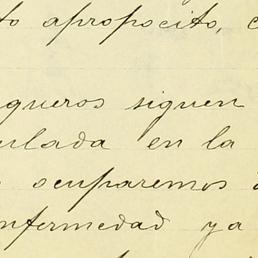 to apropocito, c
queros siguen
ulada en la
ocuparemos
nfermedad ya